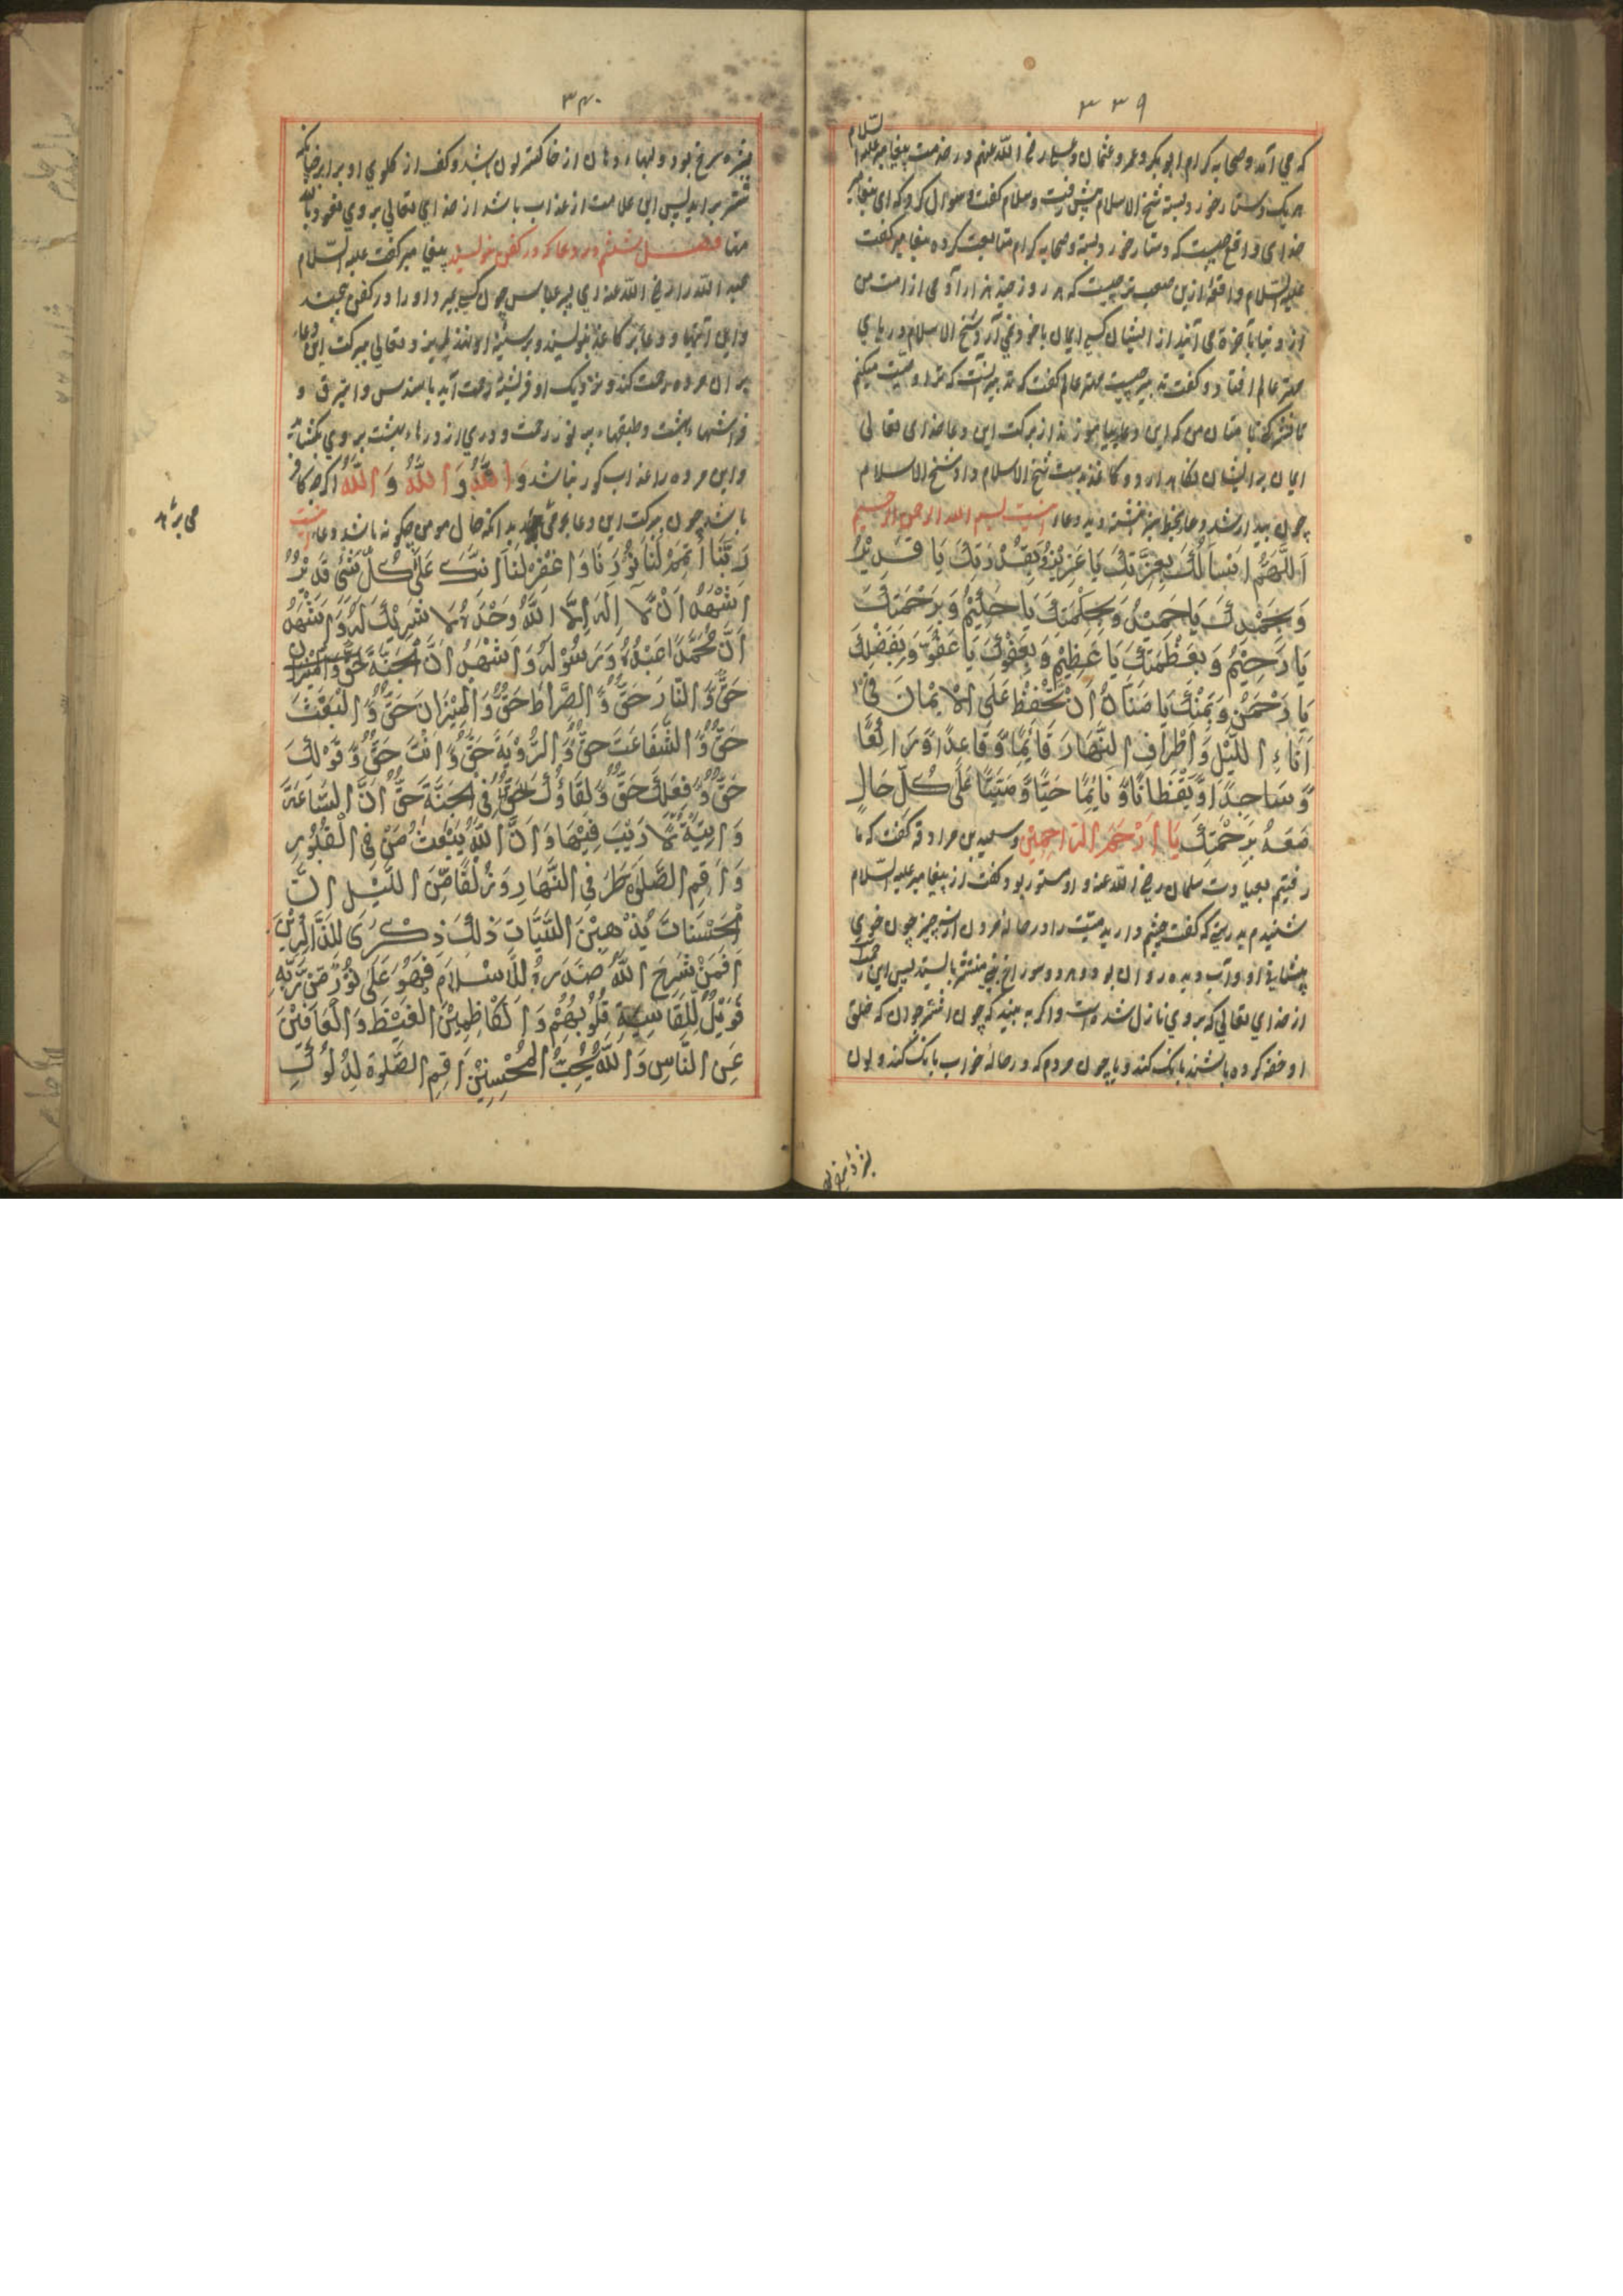 ۳۳۹
که می آمد و صحابه کرام ابوبکر و عمر و عثمان و علی رضی الله عنهم در خدمت پیغامبر علیه السّلام
هر یک دستار خود بسته شیخ الاسلام پیش رفت و سلام گفت و سوال کرد که ای پیغامبر
خدای واقع چیست که دستار خود بسته و صحابه کرام متابعت کرده پیغامبر گفت
علیه السّلام واقعه ازین صعب تر چیست که هر روز چند هزار آدمی از امت من
از دنیا بآخرة می آیند از ایشان کسی ایمان با خود نمی آرد شیخ الاسلام در پای
مهتر عالم افتاد و گفت تدبیر چیست مهتر عالم گفت که تدبیر آنست که ترا وصیّت میکنم
تا امتان من که این دعا بیاموزند از برکت این دعا خدای تعالی
ایمان بر ایشان نگاه دارد و کاغذ بدست شیخ الاسلام داد شیخ الاسلام
چون بیدار شد دعا بخط سبز نبشته دید دعاء اینست بسم الله الرحمن الرحیم
اَللّٰهُمَّ اِنِّی اَسْاَلُكَ بِعِزَّتِكَ یَا عَزِیْزُ وَبِقُدْرَتِكَ یَا قَدِیْرُ
وَبِحَمْدِكَ یَا حَمِیْدُ وَبِحِلْمِكَ یَا حَلِیْمُ وَبِرَحْمَتِكَ
یَا رَحِیْمُ وَبِعَظْمَتِكَ یَا عَظِیْمُ وَبِعَفْوِكَ یَا عَفُوُّ وَبِفَضْلِكَ
یَا رَحْمٰنُ وَبِمَنِّكَ یَا مَنَّانُ اَنْ تَحْفَظْ عَلَیَّ الْاِیْمَانَ فِیْ
اٰنَاءِ اللَّیْلِ وَاَطْرَافِ النَّهَارِ قَائِمًا وَّقَاعِدًا وَّرَاكِعًا
وَّسَاجِدًا وَّیَقْظَانًا وَّنَائِمًا حَیًّا وَّمَیِّتًا عَلٰی كُلِّ حَالٍ
مَعَهُ بِرَحْمَتِكَ یَا اَرْحَمَ الرَّاحِمِیْنَ و سعید بن مراد وقه گفت که ما
رفتیم بعیادت سلمان رضی الله عنه و او مستور بود گفت از پیغامبر علیه السّلام
شنیدم بدرستی که گفت چشم دارید میّت را در حاله مردن از سه چیز چون خوی
پیشانی او و آب دیده روان بود و هر دو سوراخ بینی منتشر بایستد پس این رحمت
از خدای تعالی که بروی نازل شده است و اگر به بینید که چون اشتر جوان که خلق
او خفه کرده باشند بانک کند و یا چون مردم که در حاله خواب بانک کند و لون
۳۴۰
بشره سرخ بود و لبهاء دهان از خاکستر لون باشد و کف از کلوی او بر آید چنانکه
شتر بر آید پس این علامت از عذاب باشد از خدای تعالی بروی نعوذ بالله
منها فصل ششم در دعا که در کفن نویسند پیغامبر گفت علیه السّلام
عبد الله را رضی الله عنه ای پسر عباس چون کسی بمیرد او را در کفن پیچند
و این آیتها و دعا بر کاغذ بنویسند و بر سینهٔ او نهند ایزد تعالی ببرکت این دعاء
بر آن مرده رحمت کند و نزدیک او فرشتهٔ رحمت آید با سندس و استبرق و
فراشهاء بهشت و طبقهاء پر نور رحمت و دری از درهاء بهشت بروی بکشاید
و این مرده را عذاب کور نباشد وَاللهُ وَ اللهُ وَ اللهُ اگرچه کافر
باشد چون ببرکت این دعا بدانکه حال مومن چکونه باشد دعاء اینست
می بر شد
رَبَّنَا اَتْمِمْ لَنَا نُوْرَنَا وَاغْفِرْ لَنَا اِنَّكَ عَلٰی كُلِّ شَیْءٍ قَدِیْرٌ
اَشْهَدُ اَنْ لَّا اِلٰهَ اِلَّا اللهُ وَحْدَهُ لَا شَرِیْكَ لَهُ وَاَشْهَدُ
اَنَّ مُحَمَّدًا عَبْدُهُ وَرَسُوْلُهُ وَاَشْهَدُ اَنَّ الْجَنَّةَ حَقٌّ وَّالْمِیْزَانَ
حَقٌّ وَّالنَّارَ حَقٌّ وَّالصِّرَاطَ حَقٌّ وَّالْمِیْزَانَ حَقٌّ وَّالْبَعْثَ
حَقٌّ وَّالشَّفَاعَتَ حَقٌّ وَّالرُّوْیَةَ حَقٌّ وَّاَنْتَ حَقٌّ وَّقَوْلُكَ
حَقٌّ وَّفِعْلُكَ حَقٌّ وَّلِقَاؤُكَ حَقٌّ فِی الْجَنَّةِ حَقٌّ اَنَّ السَّاعَةَ
وَاٰتِیَةٌ لَّا رَیْبَ فِیْهَا وَاَنَّ اللهَ یَبْعَثُ مَنْ فِی الْقُبُوْرِ
وَاَقِمِ الصَّلٰوةَ طَرَفَیِ النَّهَارِ وَزُلَفًا مِّنَ اللَّیْلِ اِنَّ
الْحَسَنَاتِ یُذْهِبْنَ السَّیِّاٰتِ ذٰلِكَ ذِكْرٰی لِلذَّاكِرِیْنَ
اَفَمَنْ شَرَحَ اللهُ صَدْرَهُ لِلْاِسْلَامِ فَهُوَ عَلٰی نُوْرٍ مِّنْ رَّبِّهِ
فَوَیْلٌ لِّلْقَاسِیَةِ قُلُوْبُهُمْ وَالْكَاظِمِیْنَ الْغَیْظَ وَالْعَافِیْنَ
عَنِ النَّاسِ وَاللهُ یُحِبُّ الْمُحْسِنِیْنَ اَقِمِ الصَّلٰوةَ لِدُلُوْكِ